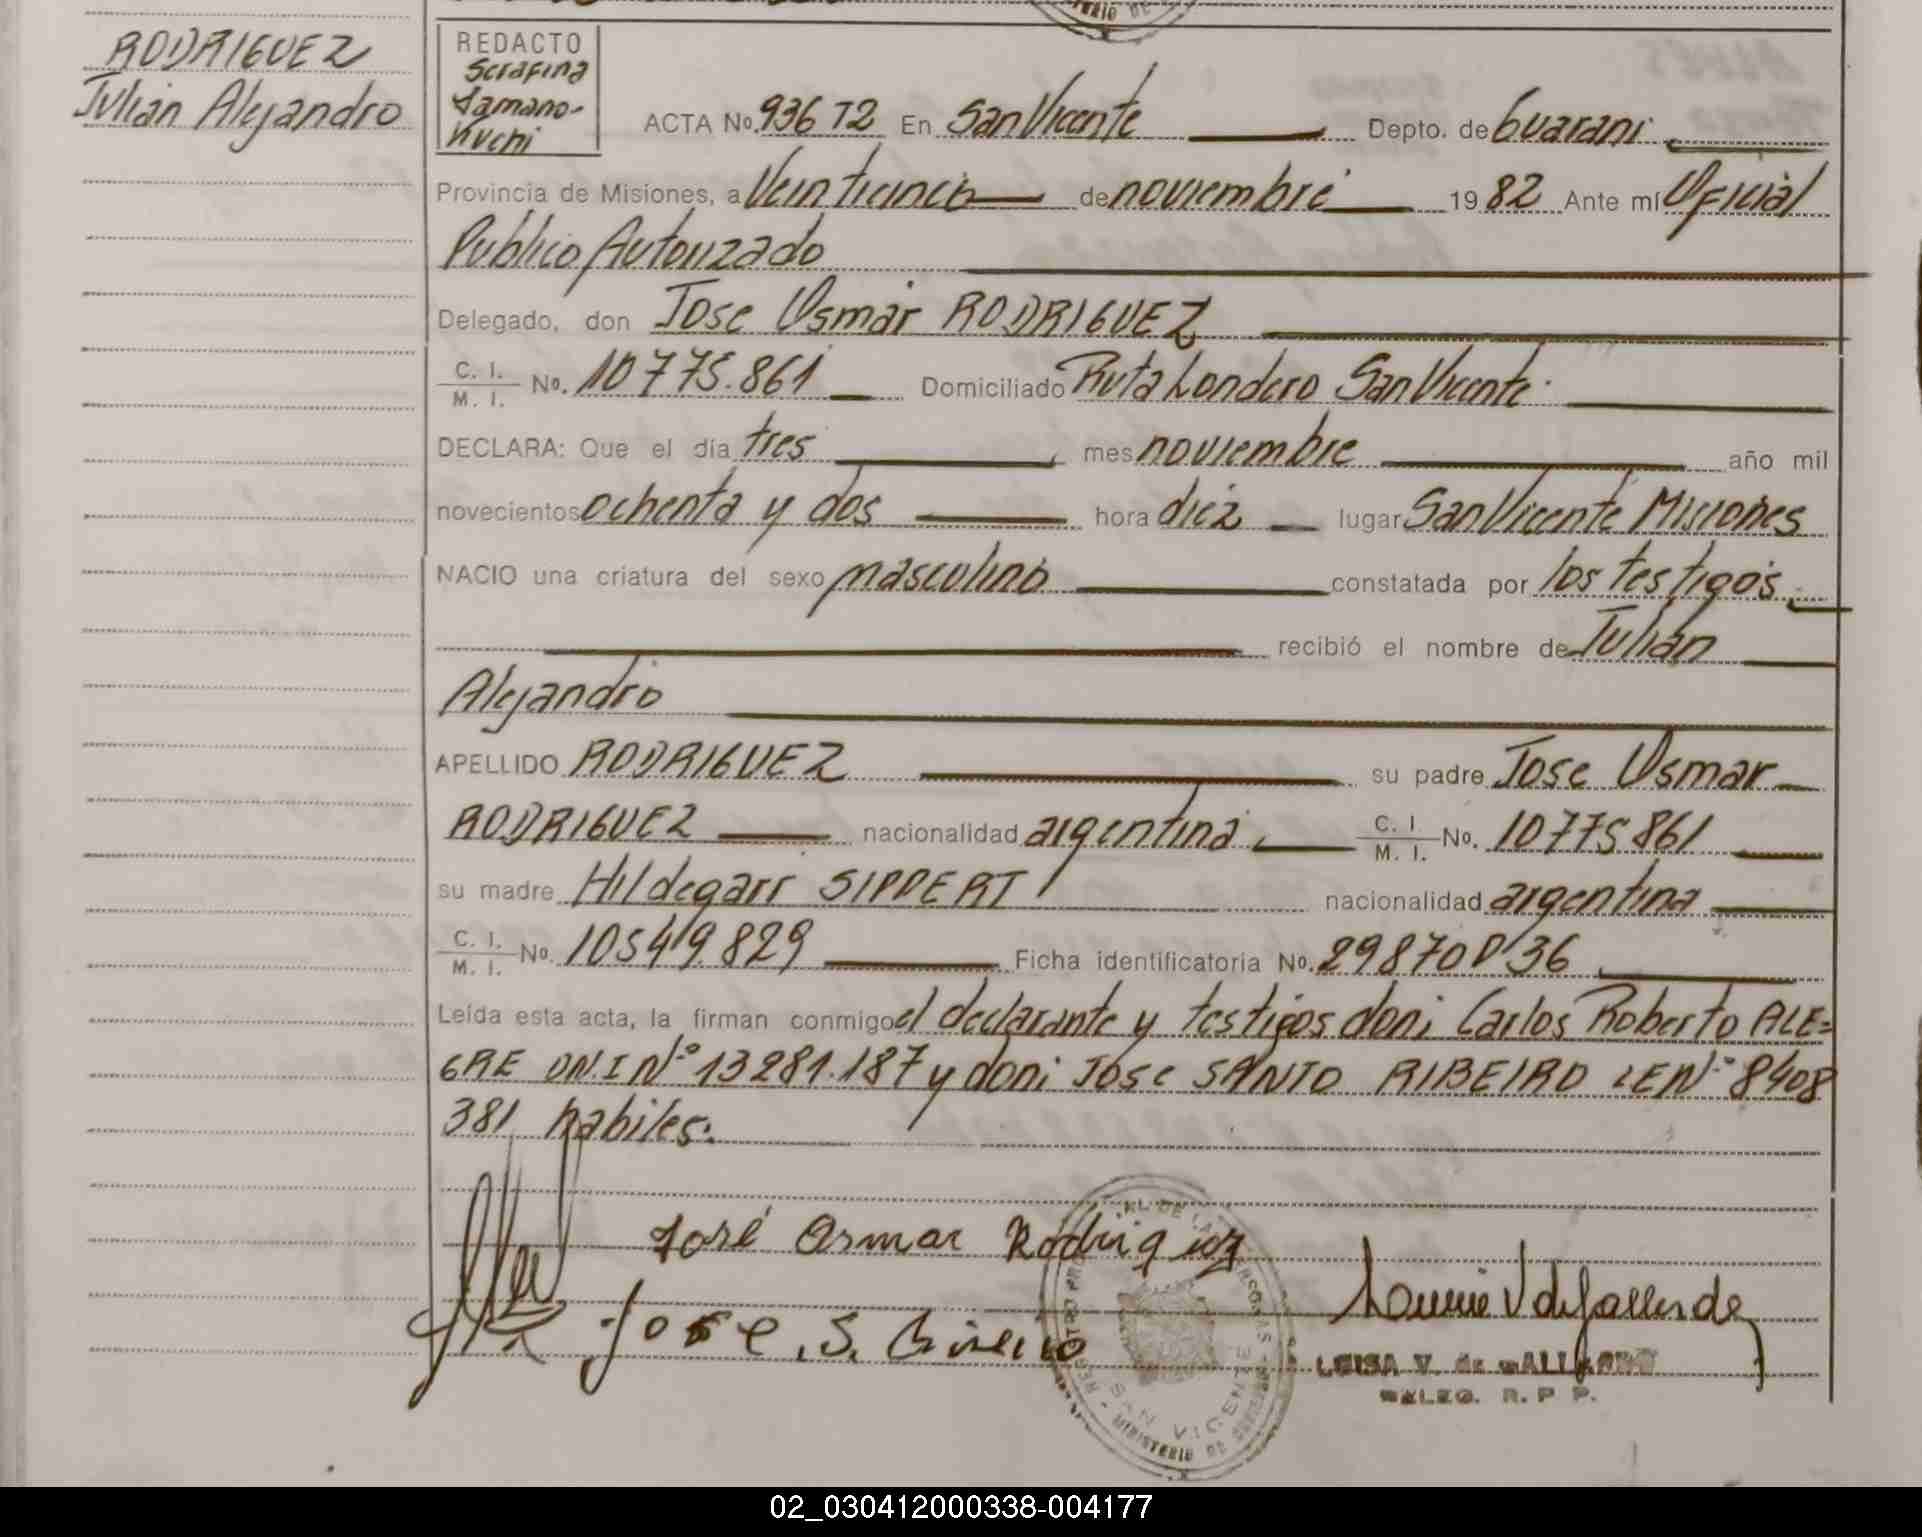 RODRIGUEZ
Julian Alejandro
REDACTO
Serafina
Yamano-
Kuchi
ACTA No. 936 T2 En San Vicente Depto. de Guarani
Provincia de Misiones, a Veinticinco de noviembre 19 82 Ante mí Oficial
Publico Autorizado
Delegado, don Jose Osmar RODRIGUEZ
C. I.
M. I. No. 10775.861 Domiciliado Ruta Londero San Vicente.
DECLARA: Que el día tres mes noviembre año mil
novecientos ochenta y dos hora diez lugar San Vicente Misiones
NACIO una criatura del sexo masculino constatada por los testigos
recibió el nombre de Julian
Alejandro
APELLIDO RODRIGUEZ su padre Jose Osmar
RODRIGUEZ nacionalidad argentina C. I.
M. I. No. 10775861
su madre Hildegarr SIPPERT nacionalidad argentina
C. I.
M. I. No. 10549.829 Ficha identificatoria No. 29870 D 36
Leída esta acta, la firman conmigo el declarante y testigos don: Carlos Roberto ALE=
GRE DN.I Nº 13281.187 y don: Jose SANTO RIBEIRO LE Nº 8408
381 habiles.
José Osmar Rodriguez
Jose .S. Ribeiro
LUISA V. de GALLARDO
DELEG. R. P P.
SAN VICENTE
MINISTERIO DE
02_030412000338-004177